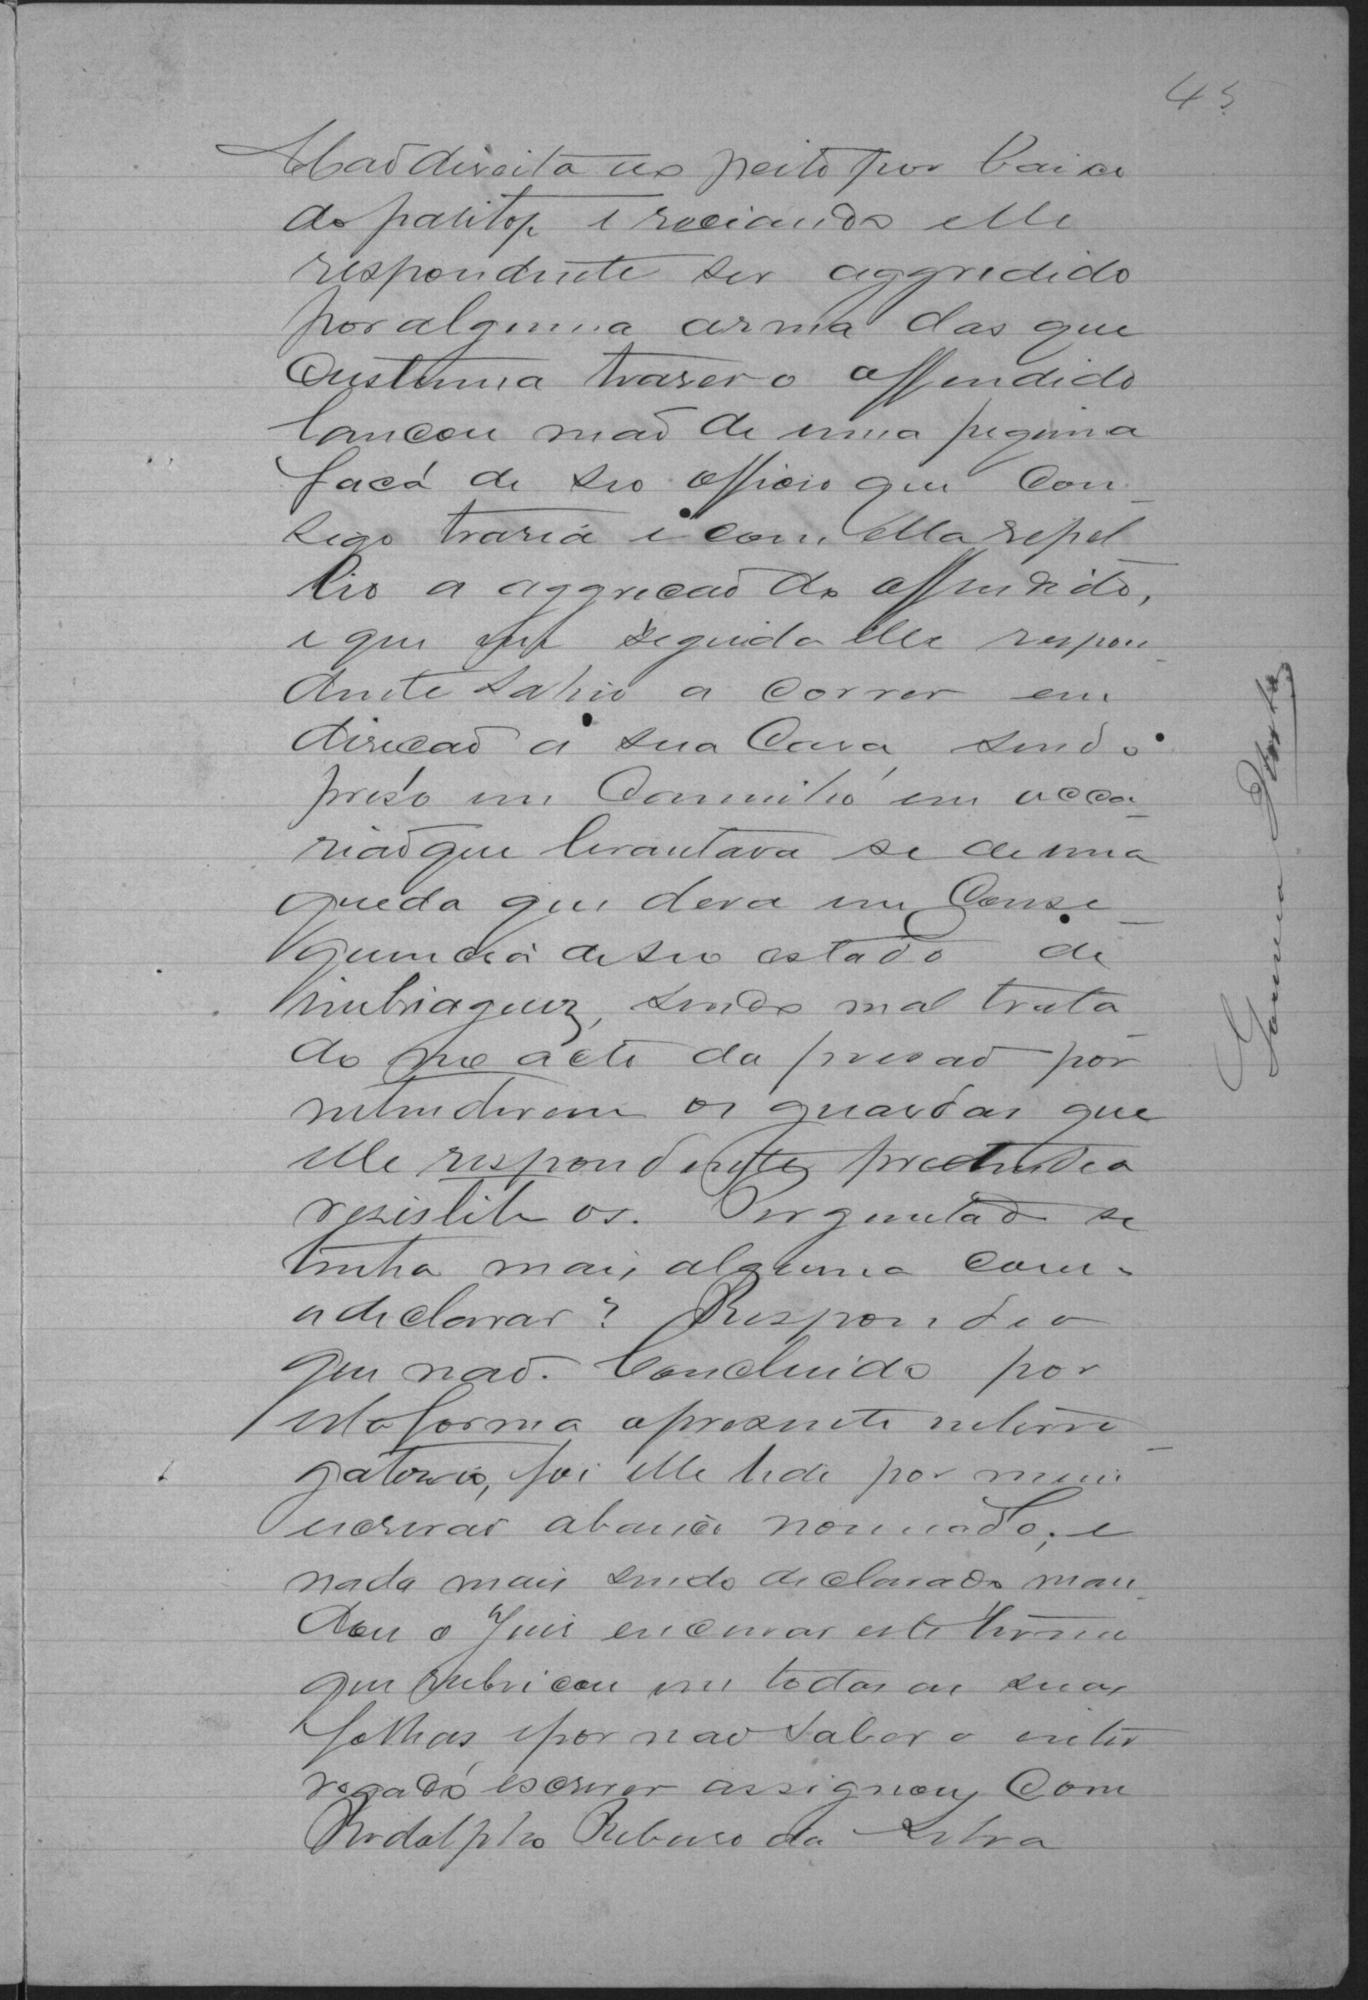 45
Mao direita no peito por baixo
do palitop e receiando elle
respondente ser aggredido
por alguma arma das que
custuma traser o offendido
lançou mão de uma piquina
faca de seo officio que con-
sigo trasia e com ella repel-
lio a aggreção do offendido,
e que em seguida elle respon-
dente sahio a correr em
direcão a sua Casa, sendo
preso em Caminho em occa-
rião que levantava se de uma
queda que dera em Conse-
quencia de seo estado de
imbriaguez, sendo mal trata-
do no acto da presão por
entenderem os guardas que
elle respondente, pretendia
resistil-os. Perguntado se
tinha mais alguma cousa
a declarar? Respondeo
que não. Concluido por
esta forma o presente interro-
gatorio, foi elle lido por mim
escrivão abaixo nomeado, e
nada mais sendo declarado man-
dou o Juis encerrar este termo
que rubricou em todas as suas
folhas e por nao saber o inter-
rogado escrever assignou, Com
Rodolpho Ribeiro da Silva